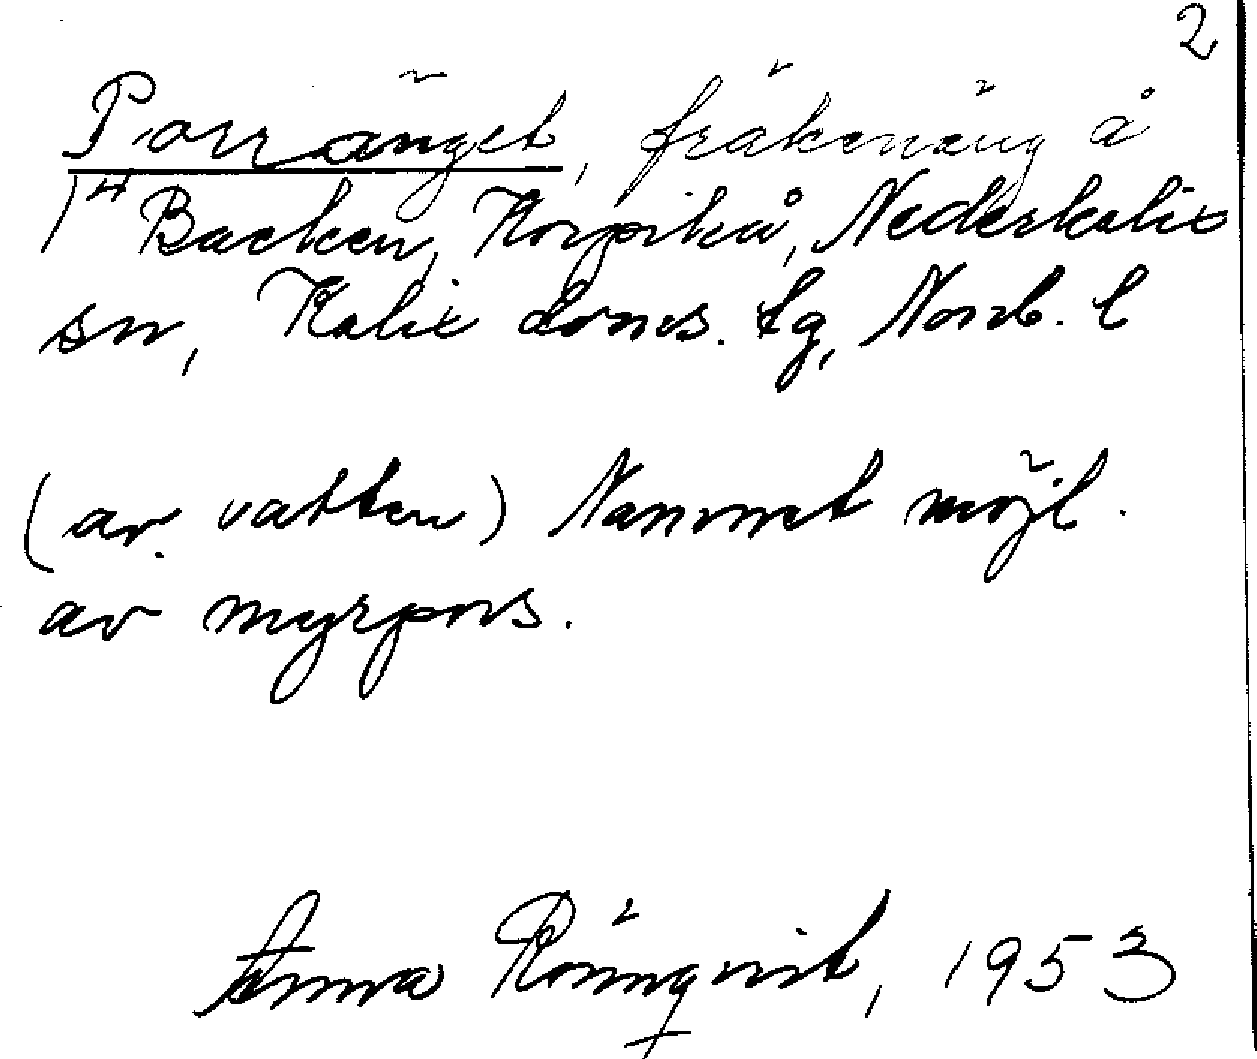 2
Porränget, fräkenäng å
1⁴ Backen, Korpikå, Nederkalix
sn, Kalix doms. tg, Norrb. l
(av. vatten) Namnet möjl.
av myrpors.
Anna Rönnqvist, 1953